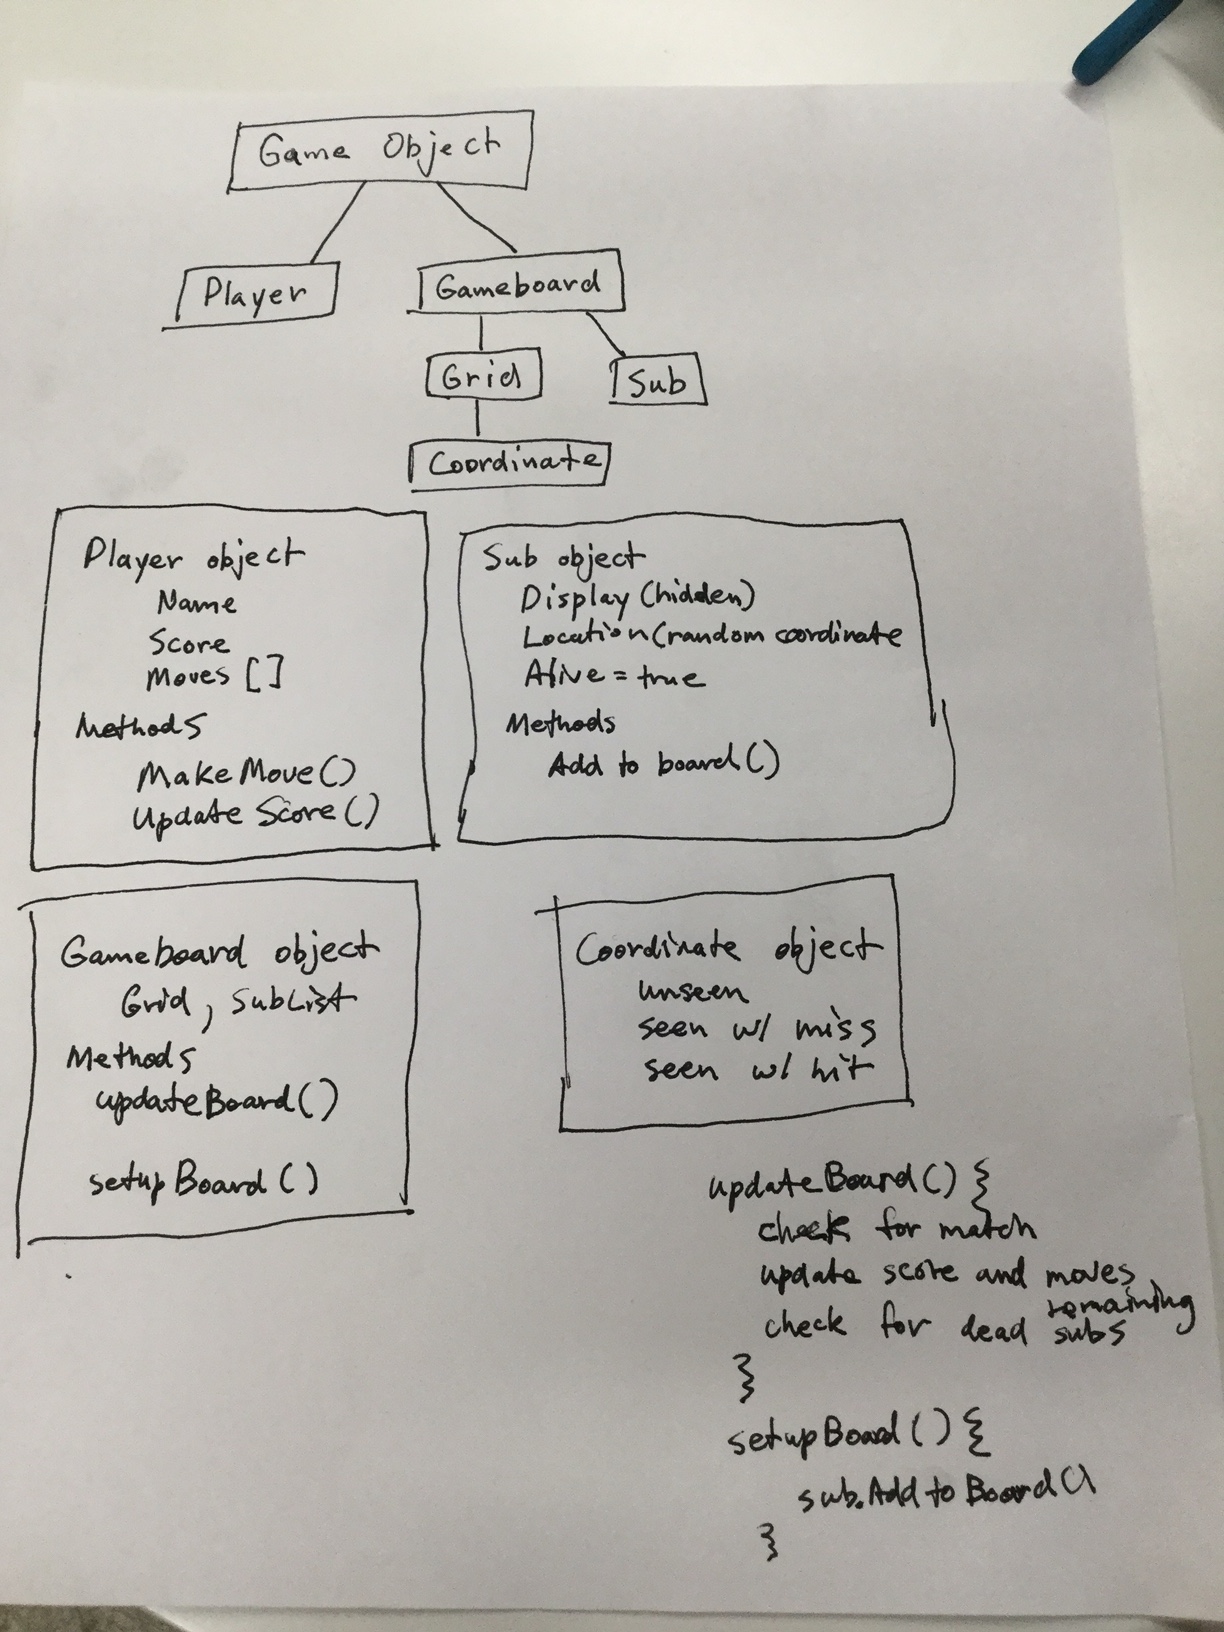 Game Object
Player
Gameboard
Grid
Sub
Coordinate
Player object
Name
Score
Moves []
Methods
MakeMove()
Update Score()
Sub object
Display (hidden)
Location (random coordinate
Alive = true
Methods
Add to board()
Gameboard object
Grid, SubList
Methods
updateBoard()
setupBoard()
Coordinate object
unseen
seen w/ miss
seen w/ hit
updateBoard() {
check for match
update score and moves
remaining
check for dead subs
}
setupBoard() {
sub.AddtoBoard()
}